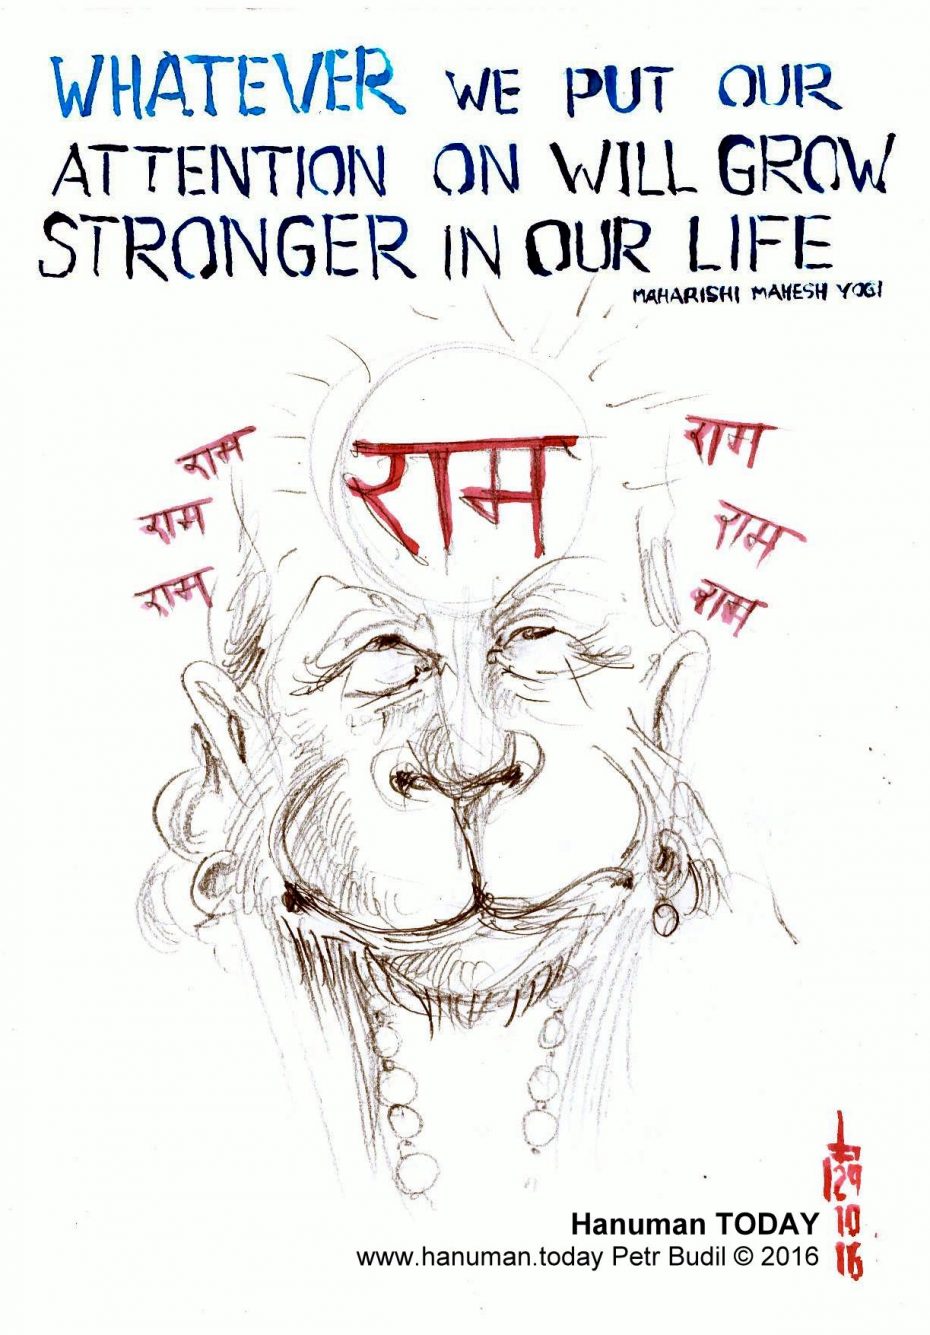 WHATEVER WE PUT OUR
ATTENTION ON WILL GROW
STRONGER IN OUR LIFE
MAHARISHI MAHESH YOGI
राम
राम
राम
राम
राम
राम
राम
29
10
16
Hanuman TODAY
www.hanuman.today Petr Budil © 2016